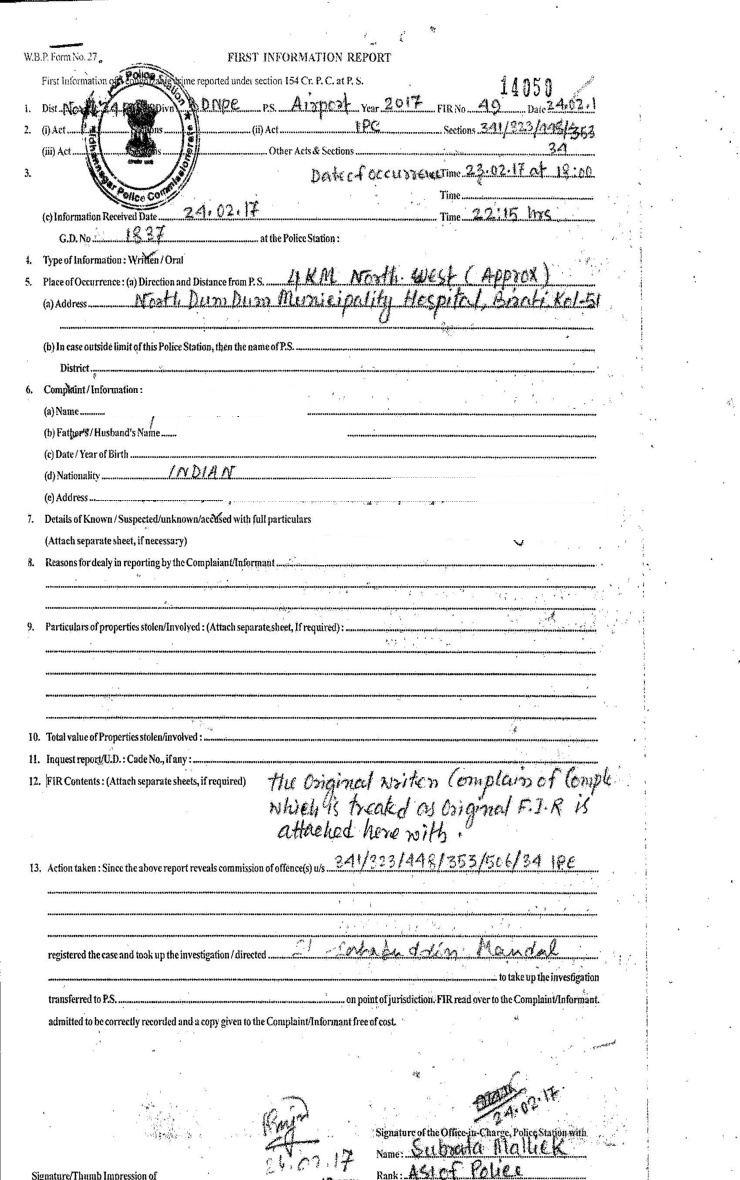 W.B.P. Form No. 27
FIRST INFORMATION REPORT
First Information of cognizable crime reported under section 154 Cr. P. C. at P. S.
14050
1. Dist. North 24 Divn. DNPE P.S. Airport Year 2017 FIR No 49 Date 24.02.1
2. (i) Act Sections (ii) Act IPC Sections 341/323/448/353
(iii) Act Other Acts & Sections 34
Police Station
Bidhannagar Police Commissionerate
3. Date of occurrence Time 23.02.17 at 18:00
Time
(c) Information Received Date 24.02.17 Time 22:15 hrs
G.D. No. 1837 at the Police Station :
4. Type of Information : Written / Oral
5. Place of Occurrence : (a) Direction and Distance from P. S. 4 KM North-West (Approx)
(a) Address North Dum Dum Municipality Hospital, Birati Kol-51
(b) In case outside limit of this Police Station, then the name of P.S.
District
6. Complaint / Information :
(a) Name
(b) Father's / Husband's Name
(c) Date / Year of Birth
(d) Nationality INDIAN
(e) Address
7. Details of Known / Suspected/unknown/accused with full particulars
(Attach separate sheet, if necessary)
8. Reasons for dealy in reporting by the Complaiant/Informant
9. Particulars of properties stolen/Involved : (Attach separate sheet, If required) :
10. Total value of Properties stolen/involved :
11. Inquest report/U.D. : Cade No., if any :
12. FiR Contents : (Attach separate sheets, if required) the Original writen Complain of Comple
which is treated as Original F.I.R is
attached here with.
13. Action taken : Since the above report reveals commission of offence(s) u/s 341/323/448/353/506/34 IPC
registered the case and took up the investigation / directed SI Sorhabuddin Mandal
to take up the investigation
transferred to P.S. on point of jurisdiction. FIR read over to the Complaint/Informant.
admitted to be correctly recorded and a copy given to the Complaint/Informant free of cost.
24.02.17
24.02.17
Signature of the Office-in-Charge, Police Station with
Name : Subrata Mallick
Signature/Thumb Impression of
Rank : ASI of Police